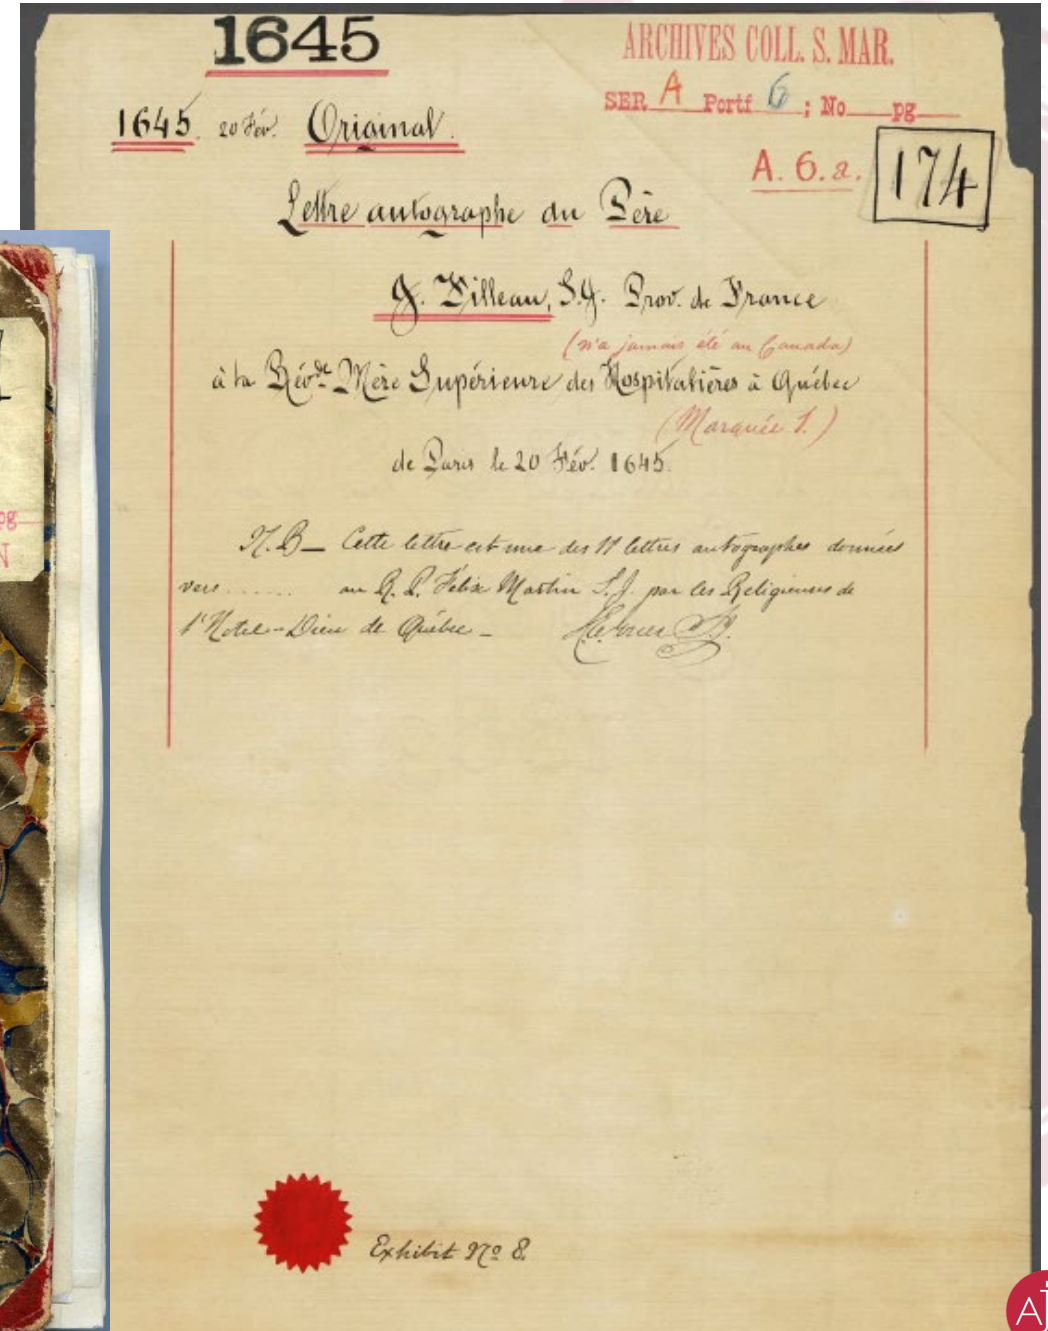 1645
ARCHIVES COLL. S. MAR.
SER A Portf 6 ; No pg
1645. 20 Fév. Original.
A. 6. a.
174
Lettre autographe du Père
J. Filleau, S.J. Prov. de France
(n'a jamais été au Canada)
à la Révde Mère Supérieure des Hospitalières à Québec
(Marquée 1.)
de Paris le 20 Fév. 1645.
N.B — Cette lettre est une des 11 lettres autographes données
vers ...... au R. P. Félix Martin S.J. par les Religieuses de
l'Hotel-Dieu de Québec —
Exhibit No 8.
pg
N